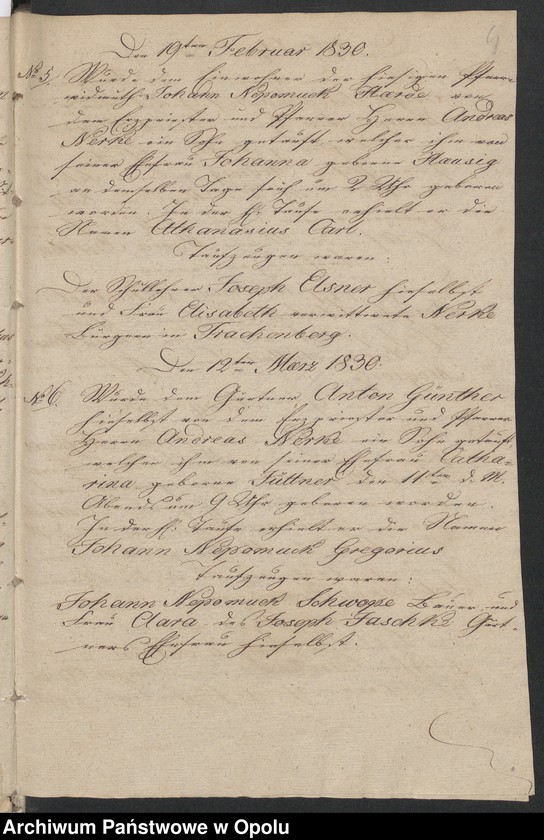 Den 19ten Februar 1830.
No 5. Wurde dem Einwohner der hiesigen Pfarr-
widmuth Johann Nepomuck von
dem Erzpriester und Pfarrer Herrn Andreas
Nerke ein Sohn getauft welcher ihm von
seiner Ehefrau Johanna geborne Hausig
an demselben Tage früh um 2 Uhr geboren
worden. In der h. Taufe erhielt er die
Namen Athanasius Carl.
Taufzeugen waren:
Der Schullehrer Joseph Elsner hieselbst
und Frau Elisabeth verwittwete Nerke
Bürgerin in Trachenberg.
Den 12ten Maerz 1830.
No 6. Wurde dem Gärtner Anton Günther
hieselbst von dem Erzpriester und Pfarrer
Herrn Andreas Nerke ein Sohn getauft,
welcher ihm von seiner Ehefrau Catha-
rina geborne Füttner den 11ten d. M.
Abends um 9 Uhr geboren worden.
In der h. Taufe erhielt er die Namen
Johann Nepomuck Gregorius
Taufzeugen waren:
Johann Nepomuck Schwope Bauer und
Frau Clara des Joseph Jaschke Gärt-
ners Ehefrau hieselbst.
Archiwum Państwowe w Opolu